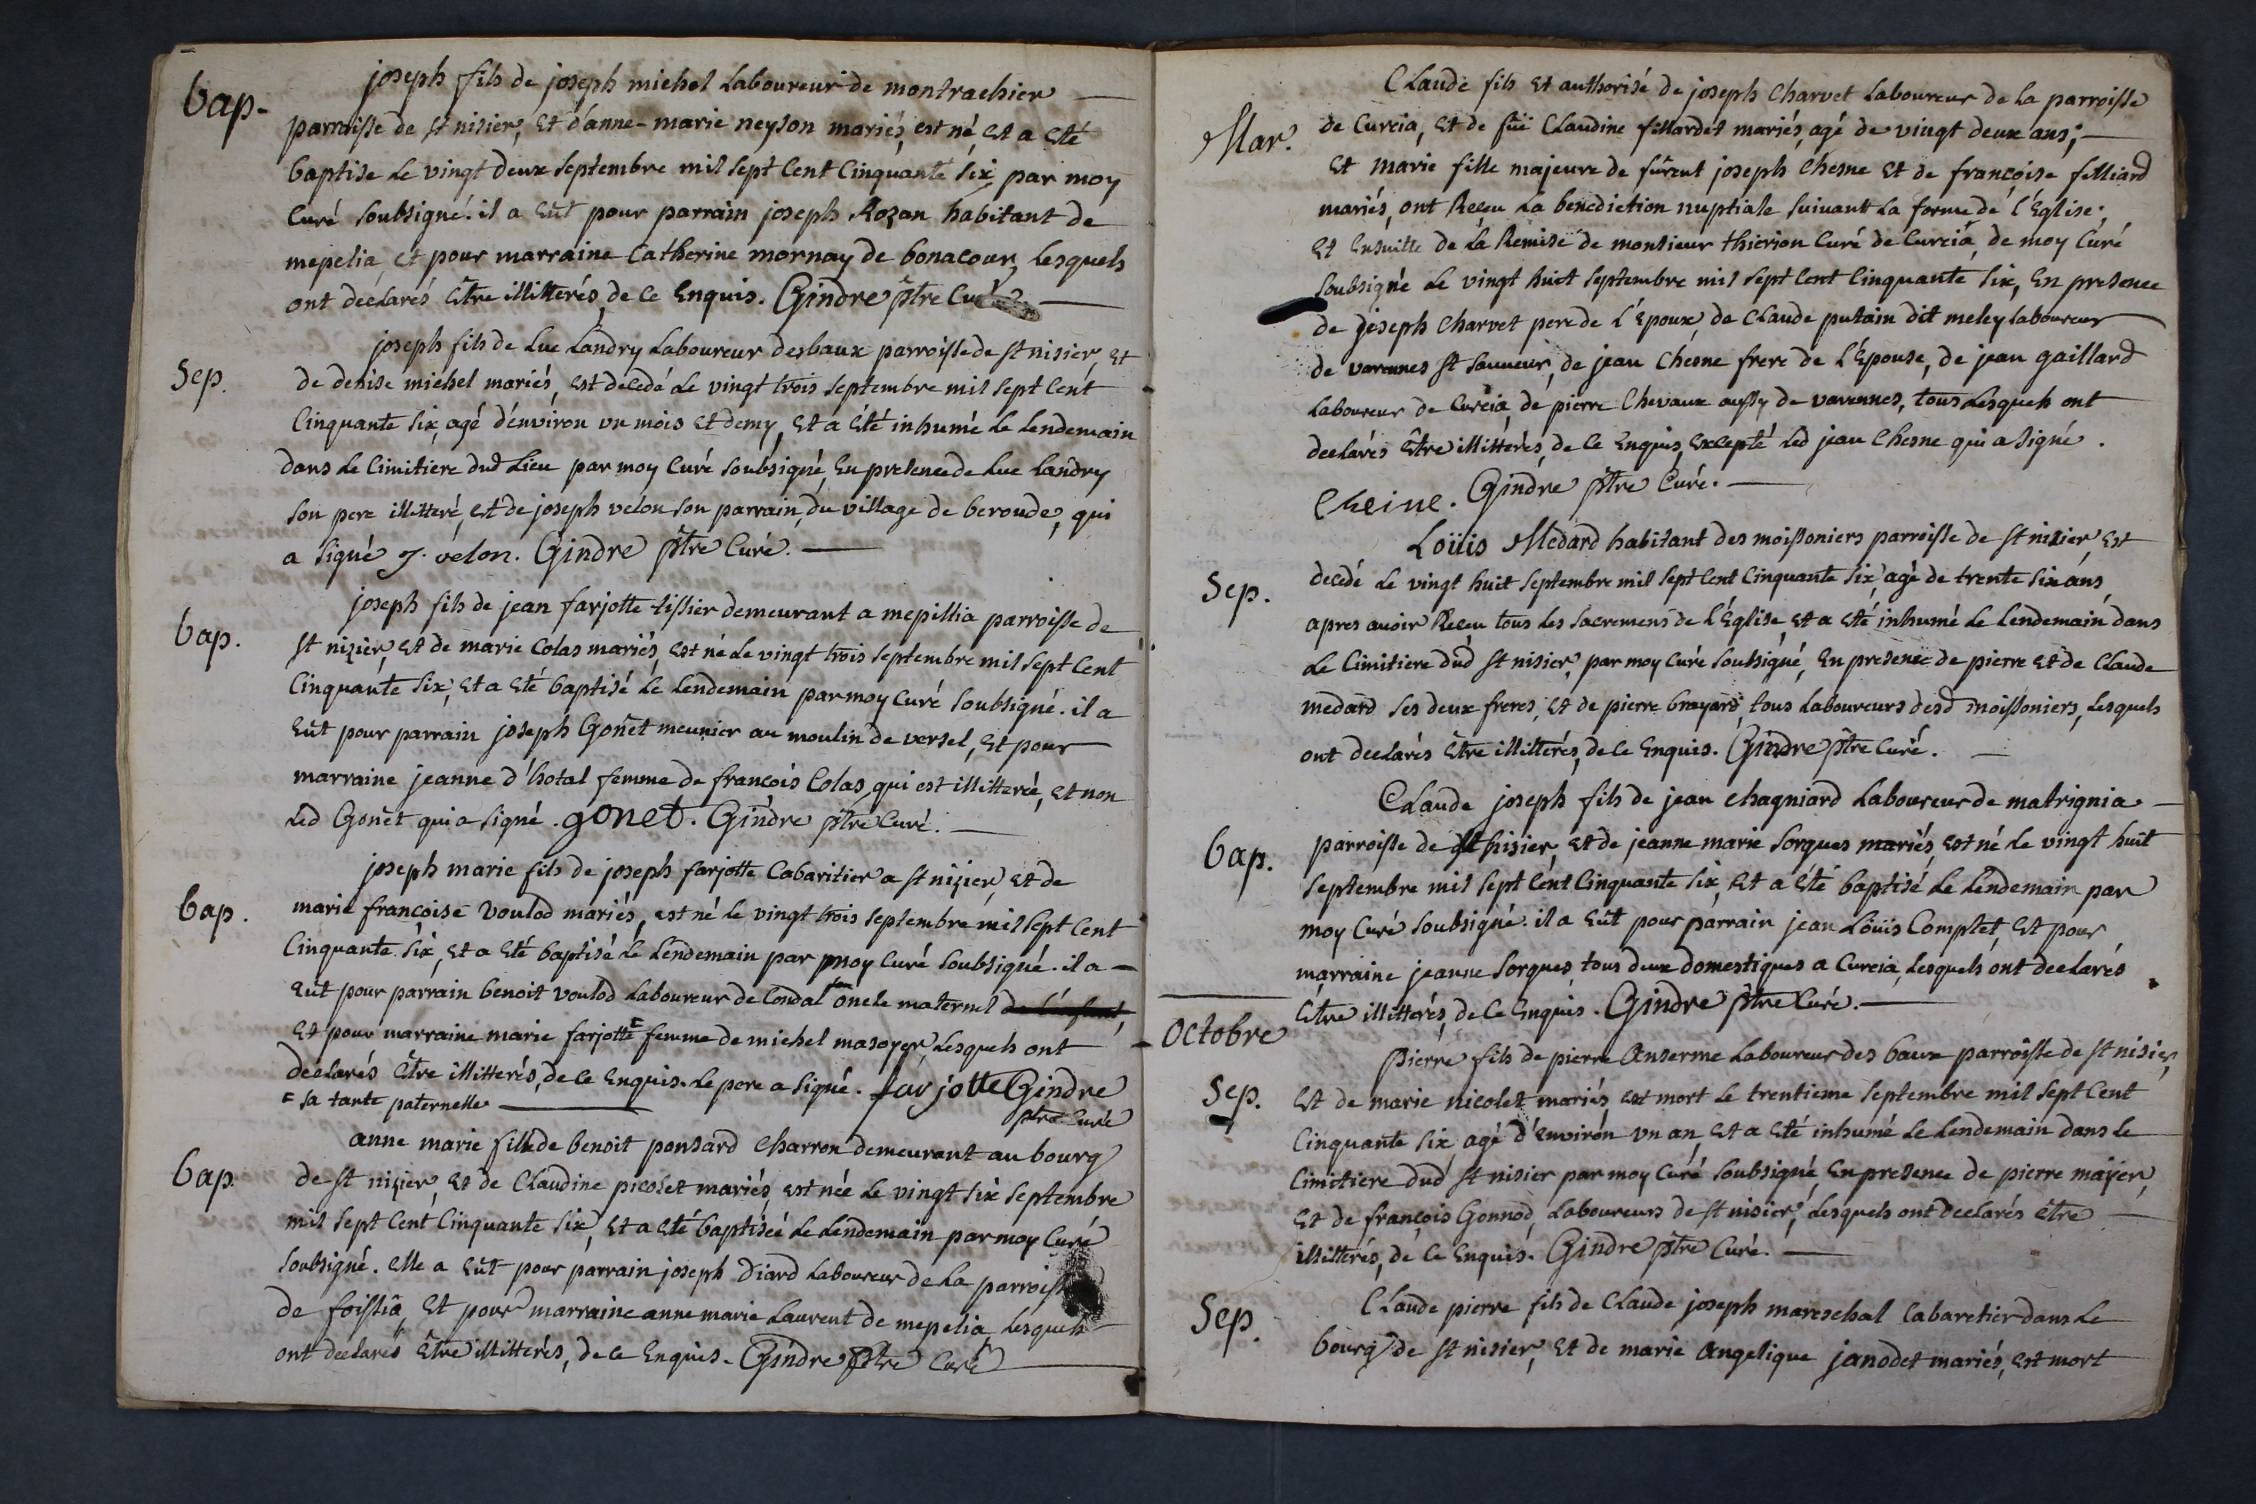 Bap.
joseph fils de joseph michel Laboureur de montrachier
parroisse de st nisier, et d'anne-marie neyson mariés, est né et a eté
baptise le vingt deux septembre mil sept cent cinquante six par moy
curé soubsigné. il a eût pour parrain joseph Rozan habitant de
mepelia, et pour marraine catherine mornay de bonacour, lesquels
ont declarés être illitterés, de ce enquis. Gindre ptre curé
Sep.
joseph fils de Luc Landry Laboureur desbaux parroisse de st nisier, et
de denise michel mariés, est decedé le vingt trois septembre mil sept cent
cinquante six, agé d'environ un mois et demy, et a été inhumé le lendemain
dans le cimitiere dud lieu par moy curé soubsigné, en presence de Luc Landry
son pere illitteré, et de joseph velon son parrain, du village de beroude, qui
a signé j. velon. Gindre ptre curé.
Bap.
joseph fils de jean farjotte tissier demeurant a mepillia parroisse de
st nizier, et de marie colas mariés, est né le vingt trois septembre mil sept cent
cinquante six, et a eté baptisé le lendemain par moy curé soubsigné. il a
eût pour parrain joseph Gonet meunier au moulin de versel, et pour
marraine jeanne d'hotal femme de françois colas, qui est illitterée, et non
led Gonet qui a signé. gonet. Gindre ptre curé.
Bap.
joseph marie fils de joseph farjotte cabaritier a st nizier et de
marie françoise voulod mariés, est né le vingt trois septembre mil sept cent
cinquante six, et a eté baptisé le lendemain par moy curé soubsigné. il a
eût pour parrain benoit voulod laboureur de condal son oncle maternel de l'enfant,
et pour marraine marie farjotte = femme de michel masoyer, lesquels ont
declarés être illitterés, de ce enquis. le pere a signé. farjotte Gindre
= sa tante paternelle ptre curé
Bap.
anne marie fille de benoit ponsard charron demeurant au bourg
de st nizier, et de claudine picolet mariés, est née le vingt six septembre
mil sept cent cinquante six, et a eté baptisée le lendemain par moy curé
soubsigné. elle a eût pour parrain joseph Diard Laboureur de la parroisse
de foissia, et pour marraine anne marie Laurent de mepelia, lesquels
ont declarés être illitterés, de ce enquis. Gindre ptre curé
Mar.
Claude fils et authorisé de joseph charvet Laboureur de la parroisse
de curcia, et de füe claudine fillardet mariés, agé de vingt deux ans;
et marie fille majeure de furent joseph chesne et de françoise filliard
mariés, ont Reçeu la benediction nuptiale suivant la forme de l'Eglise;
et ensuitte de la Remise de monsieur thierion curé de curcia, de moy curé
soubsigné le vingt huit septembre mil sept cent cinquante six, en presence
de joseph charvet pere de l'époux, de claude putain dit meley laboureur
de varennes st sauveur, de jean chesne frere de l'Epouse, de jean gaillard
laboureur de curcia, de pierre chevaux aussy de varennes, tous lesquels ont
declarés être illitterés, de ce enquis, excepté led jean chesne qui a signé.
cheine. Gindre ptre curé.
Sep.
Loüis Medard habitant des moissoniers parroisse de st nizier, est
decedé le vingt huit septembre mil sept cent cinquante six, agé de trente six ans,
apres avoir Reçeu tous les sacremens de l'Eglise, et a eté inhumé le lendemain dans
le cimitiere dud st nisier, par moy curé soubsigné, en presence de pierre et de claude
medard ses deux freres, et de pierre brayard, tous laboureurs desd moissoniers, lesquels
ont declarés être illitterés, de ce enquis. Gindre ptre curé.
Bap.
Claude joseph fils de jean chagniard Laboureur de matrignia
parroisse de st nisier, et de jeanne marie sorgues mariés, est né le vingt huit
septembre mil sept cent cinquante six, et a été baptisé le lendemain par
moy curé soubsigné. il a eût pour parrain jean Loüis complet, et pour
marraine jeanne sorgues, tous deux domestiques a curcia, lesquels ont declarés
être illitterés, de ce enquis. Gindre ptre curé.
Octobre
Sep.
Pierre fils de pierre Anserme Laboureur des baux parroisse de st nisier,
et de marie nicolet mariés, est mort le trentieme septembre mil sept cent
cinquante six, agé d'environ un an, et a eté inhumé le lendemain dans le
cimitiere dud st nisier par moy curé soubsigné en presence de pierre maÿer,
et de françois Gonnod, laboureurs de st nisier, lesquels ont declarés être
illitterés, de ce enquis. Gindre ptre curé.
Sep.
Claude pierre fils de claude joseph mareschal cabaretier dans le
bourg de st nisier, et de marie Angelique janodet mariés, est mort